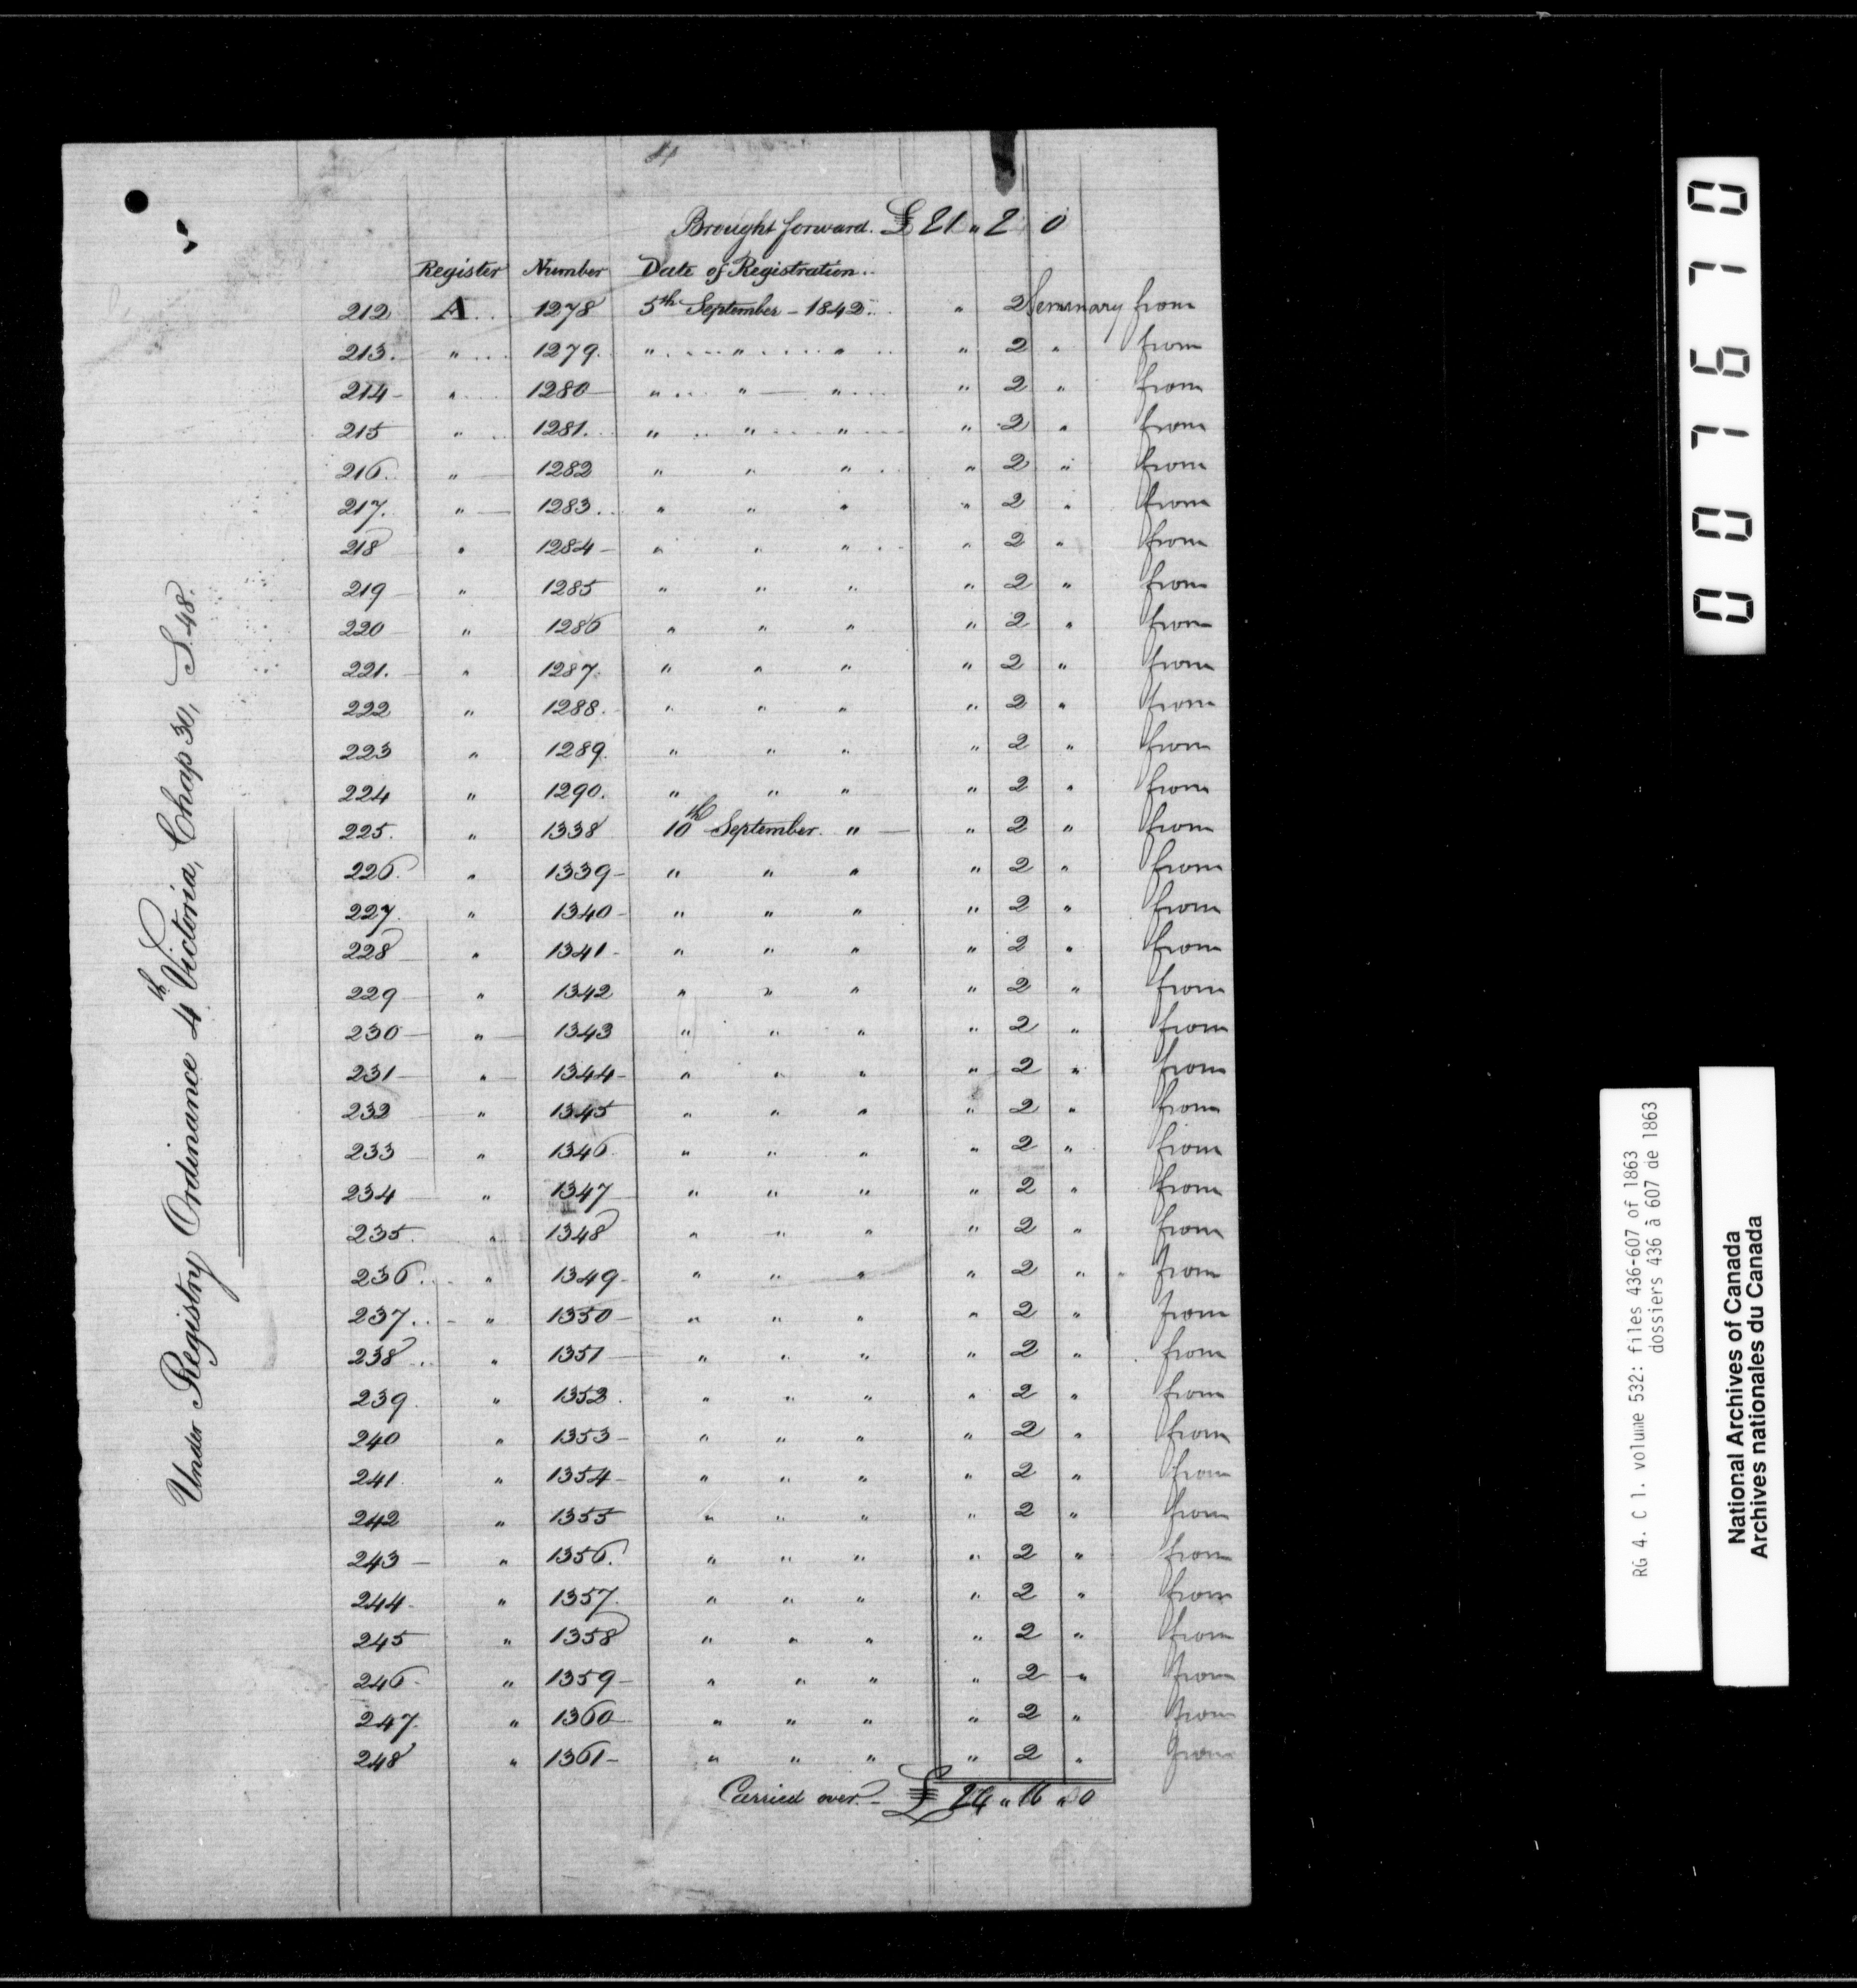 4
Brought forward. £ 21 " 2 0
Register Number Date of Registration..
212 A.. 1278 5th September - 1842. " 2 Seminary from
213. " 1279. " " " " 2 " from
214 - " 1280 " " " " 2 " from
215 " 1281. " " " " 2 " from
216. " 1282 " " " " 2 " from
217. " 1283. " " " " 2 " from
218 " 1284 - " " " " 2 " from
219 " 1285 " " " " 2 " from
220 " 1286 " " " " 2 " from
221. " 1287. " " " " 2 " from
222 " 1288. " " " " 2 " from
223 " 1289. " " " " 2 " from
224 " 1290. " " " " 2 " from
225. " 1338 10th September. " " 2 " from
226. " 1339 - " " " " 2 " from
227. " 1340 - " " " " 2 " from
228 " 1341 - " " " " 2 " from
229 " 1342 " " " " 2 " from
230 " 1343 " " " " 2 " from
231 " 1344 - " " " " 2 " from
232 " 1345 " " " " 2 " from
233 " 1346. " " " " 2 " from
234 " 1347 " " " " 2 " from
235. " 1348 " " " " 2 " from
236. " 1349 - " " " " 2 " from
237. " 1350 - " " " " 2 " from
238 " 1351 " " " " 2 " from
239. " 1352. " " " " 2 " from
240 " 1353 - " " " " 2 " from
241. " 1354 - " " " " 2 " from
242 " 1355 " " " " 2 " from
243 - " 1356. " " " " 2 " from
244 - " 1357. " " " " 2 " from
245 " 1358 " " " " 2 " from
246 - " 1359 - " " " " 2 " from
247. " 1360 " " " " 2 " from
248 " 1361 - " " " " 2 " from
Carried over. - £ 24 " 16 " 0
Under Registry Ordinance 4th Victoria, Chap 30, S. 48.
007670
RG 4. C 1. volume 532: files 436-607 of 1863
dossiers 436 à 607 de 1863
National Archives of Canada
Archives nationales du Canada